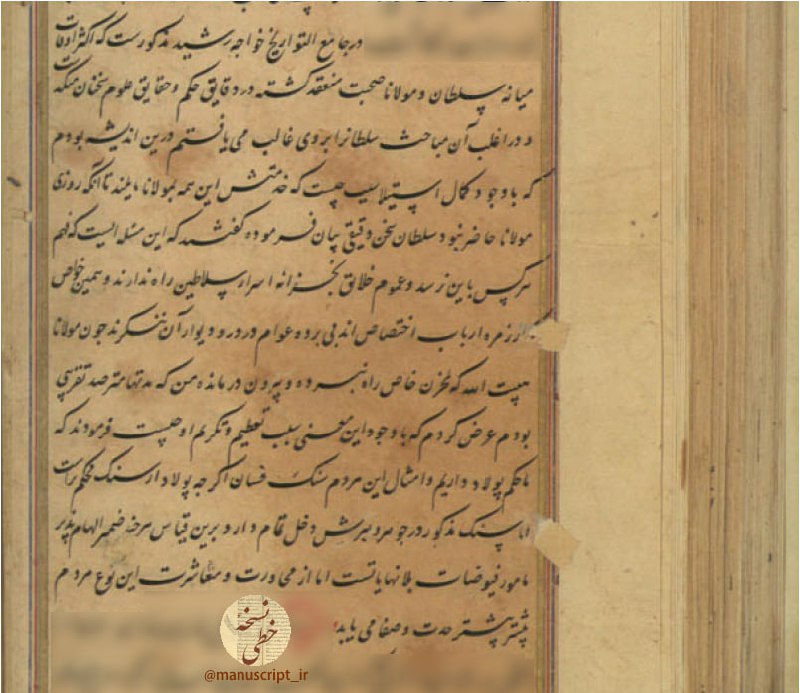 در جامع التواریخ خواجه رشید مذکورست که اکثر اوقات
میانه سلطان و مولانا صحبت منعقد کشته در دقایق حکم و حقایق علوم سخنان میکفت
و در اغلب آن مباحث سلطانرا بروی غالب می یافتم درین اندیشه بودم
که با وجود کمال استیلا سبب چیست که خدمتش این همه بمولانا مایلند تا آنکه روزی
مولانا حاضر نبود سلطان سخن دقیقی بیان فرموده کفتند که این مسئله ایست که فهم
هرکس باین نرسد و عموم خلایق بخزانه اسرار سلاطین راه ندارند و همین خواص
که از زمره ارباب اختصاص اند پی برده عوام در در و دیوار آن ننکرند چون مولانا
هیبت الله که بمخزن خاص راه نبرده و بیرون در مانده من که مدتها مترصد تقریبی
بودم عرض کردم که با وجود این معنی سبب تعظیم و تکریم او چیست فرمودند که
ما حکم پولاد داریم و امثال این مردم سنک فسان اکر چه پولاد از سنک محکم تراست
اما سنک مذکور در جوهر و برش دخل تمام دارد و برین قیاس هر چند ضمیر الهام پذیر
ما مورد فیوضات بلانهایاتست اما از محاورت و معاشرت این نوع مردم
بیشتر پیشتر حدت و صفا می یابد
نسخهٔ خطی
@manuscript_ir